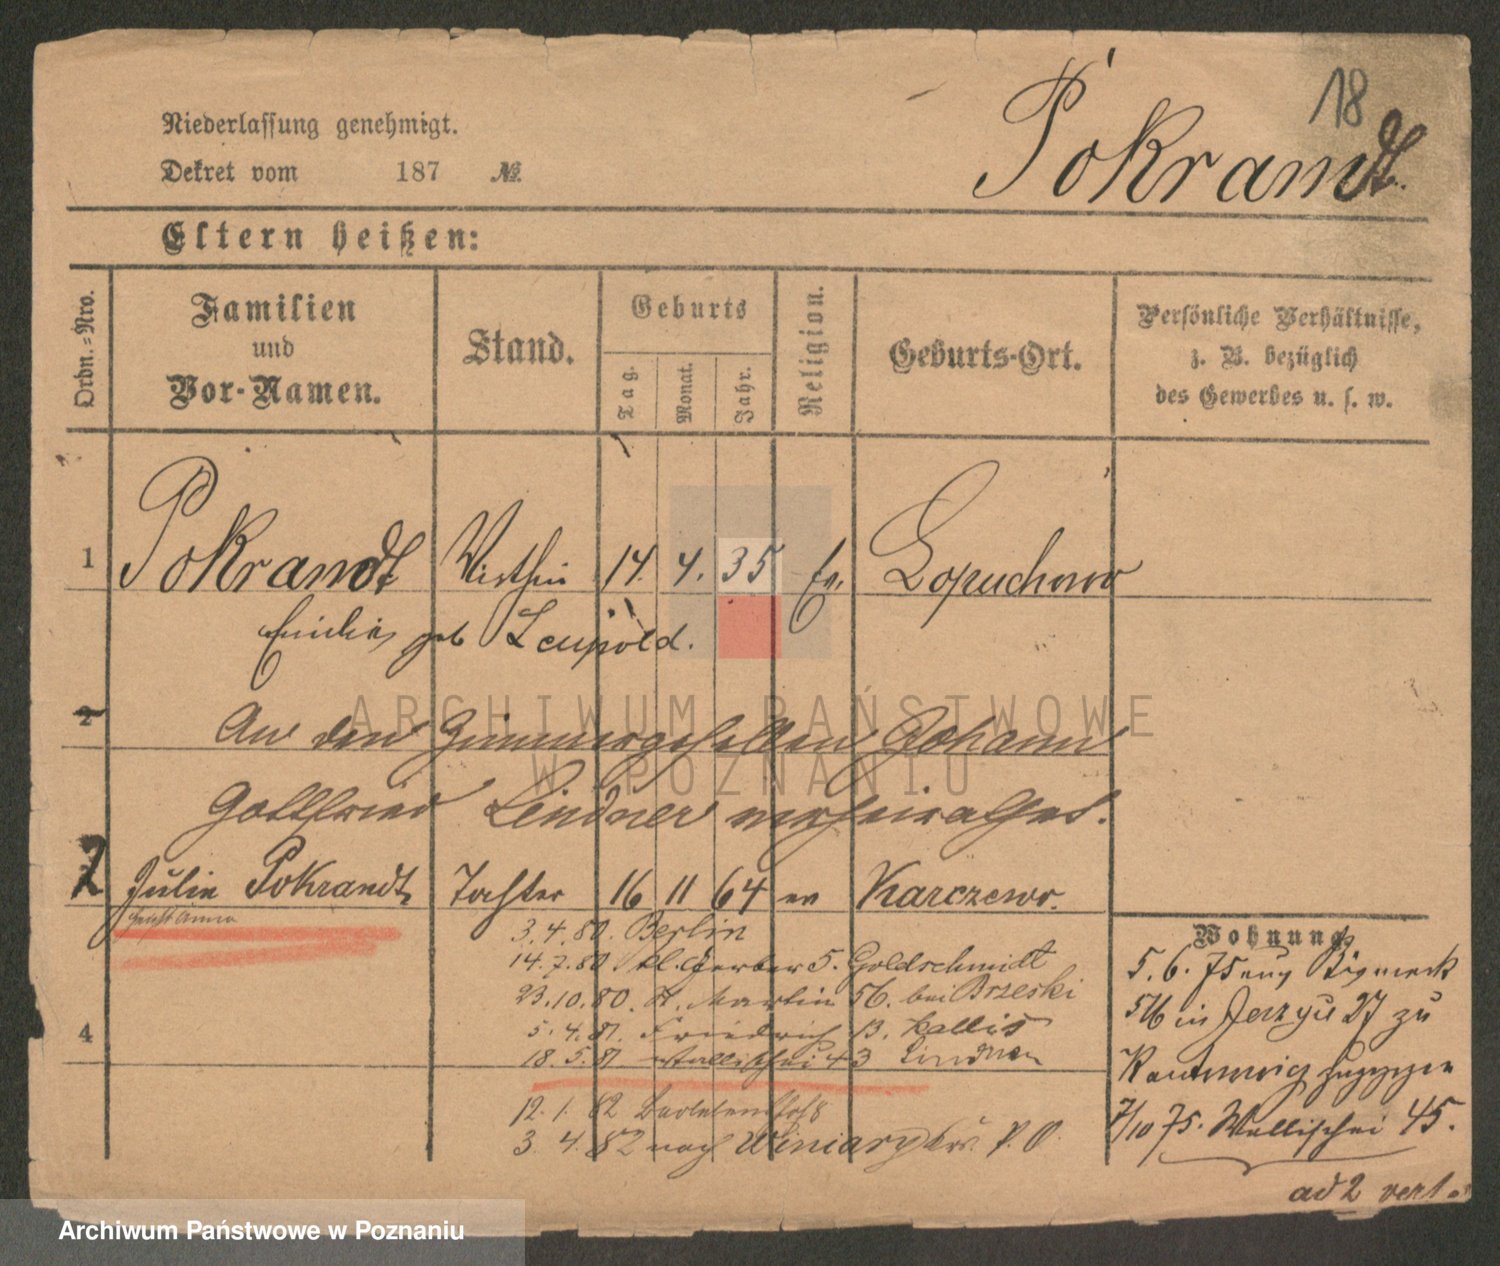 18
Pokrandt.
Niederlassung genehmigt.
Dekret vom 187 №
Eltern heißen:
Ordn.=Nro.
Familien und Vor-Namen.
Stand.
Geburts
Tag.
Monat.
Jahr.
Religion.
Geburts-Ort.
Persönliche Verhältnisse,
z. B. bezüglich
des Gewerbes u. s. w.
1 Pokrandt Wirthin 14. 4. 35 ev. Lopuchowo
Emilie geb Leupold.
2
An den Zimmergesellen Johann
Gottfried Lindner verheirathet.
2 Julie Pokrandt Tochter 16 11 64 ev Karczewo.
3.4.80. Berlin
14.7.80 Kl. Gerber 5. Goldschmidt
23.10.80. St. Martin 56. bei Brzeski
5.4.81. Friedrich 13. Kallis
4
18.5.81 Wallischei 43 Lindner
12.1.82
3.4.82 nach Winiary Krs. P. O.
Wohnung
5.6.75 aus
56 in Jerzyce 27 zu
zugezogen
7/10 75. Wallischei 45.
ad 2 vert.
ARCHIWUM PAŃSTWOWE
W POZNANIU
Archiwum Państwowe w Poznaniu